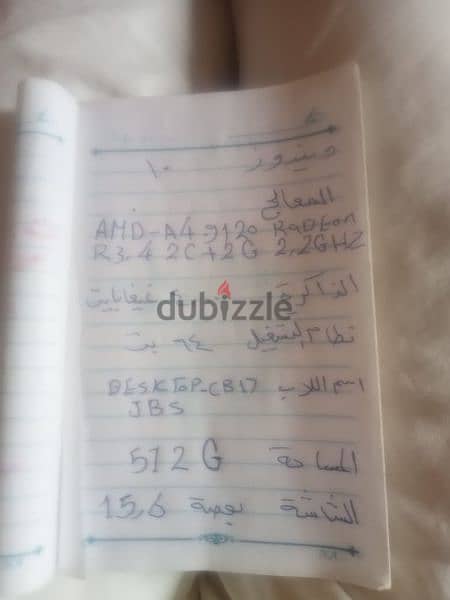 وينيدوز ١٠
المعالج
AMD-A4 9120 RaDEon
R3,4 2C+2G 2,2GHZ
الذاكرة غيغابايت
dubizzle
نظام التشغيل ٦٤ بت
اسم اللاب DESKTOP-CB17
JBS
المساحة 512G
الشاشة بوصة 15,6